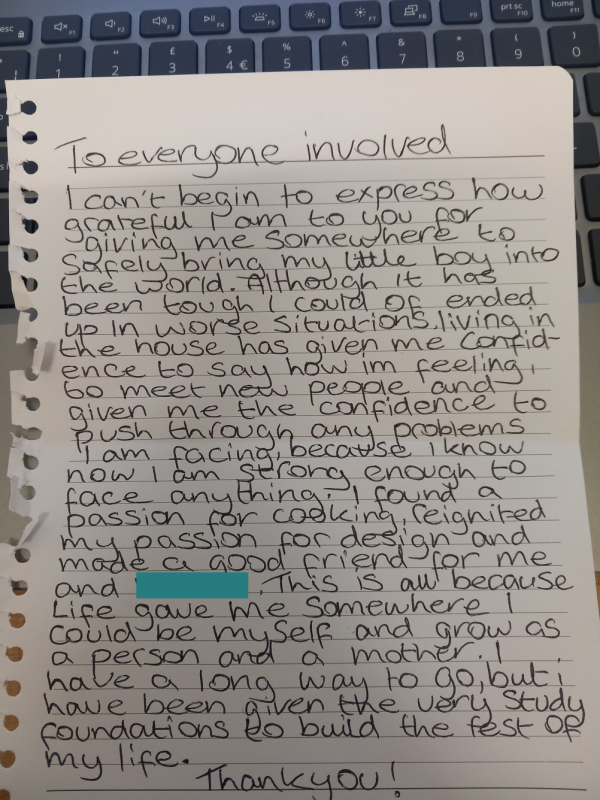 esc F1 F2 F3 F4 F5 F6 F7 F8 F9 prt sc F10 home F11
! " £ $ % ^ & * ( )
1 2 3 4 € 5 6 7 8 9 0
To everyone involved
I can't begin to express how
grateful I am to you for
giving me somewhere to
safely bring my little boy into
the world. Although it has
been tough I could of ended
up in worse situations, living in
the house has given me confid-
ence to say how im feeling,
to meet new people and
given me the confidence to
push through any problems
I am facing, because I know
now I am strong enough to
face anything. I found a
passion for cooking, reignited
my passion for design and
made a good friend for me
and . This is all because
Life gave me somewhere I
could be myself and grow as
a person and a mother. I
have a long way to go, but i
have been given the very study
foundations to build the rest of
my life.
Thankyou!